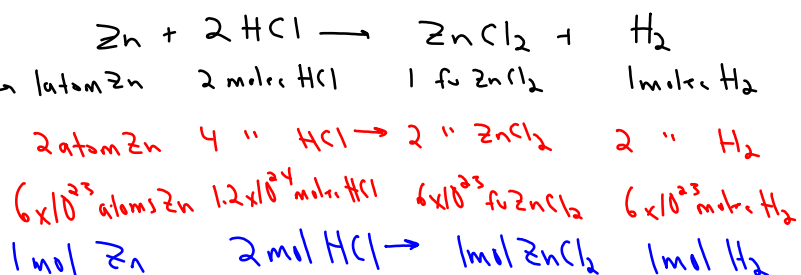 Zn + 2 HCl → ZnCl₂ + H₂
1 atom Zn 2 molec HCl 1 fu ZnCl₂ 1 molec H₂
2 atom Zn 4 " HCl → 2 " ZnCl₂ 2 " H₂
6x10²³ atoms Zn 1.2x10²⁴ molec HCl 6x10²³ fu ZnCl₂ 6x10²³ molec H₂
1 mol Zn 2 mol HCl → 1 mol ZnCl₂ 1 mol H₂